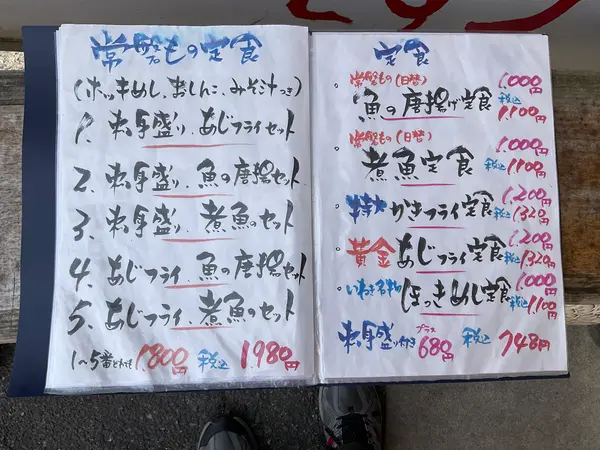 常磐もの定食
(ホッキめし、おしんこ、みそ汁つき)
1. 刺身盛り、あじフライセット
2. 刺身盛り、魚の唐揚セット
3. 刺身盛り、煮魚のセット
4. あじフライ、魚の唐揚セット
5. あじフライ、煮魚のセット
1〜5番どれでも 1,800円 税込 1,980円
定食
常磐もの(日替) 1,000円
魚の唐揚げ定食 税込 1,100円
常磐もの(日替) 1,000円
煮魚定食 税込 1,100円
特大かきフライ定食 1,200円 税込 1,320円
黄金あじフライ定食 1,200円 税込 1,320円
いわき名物 ほっきめし定食 1,000円 税込 1,100円
刺身盛り付き プラス 680円 税込 748円